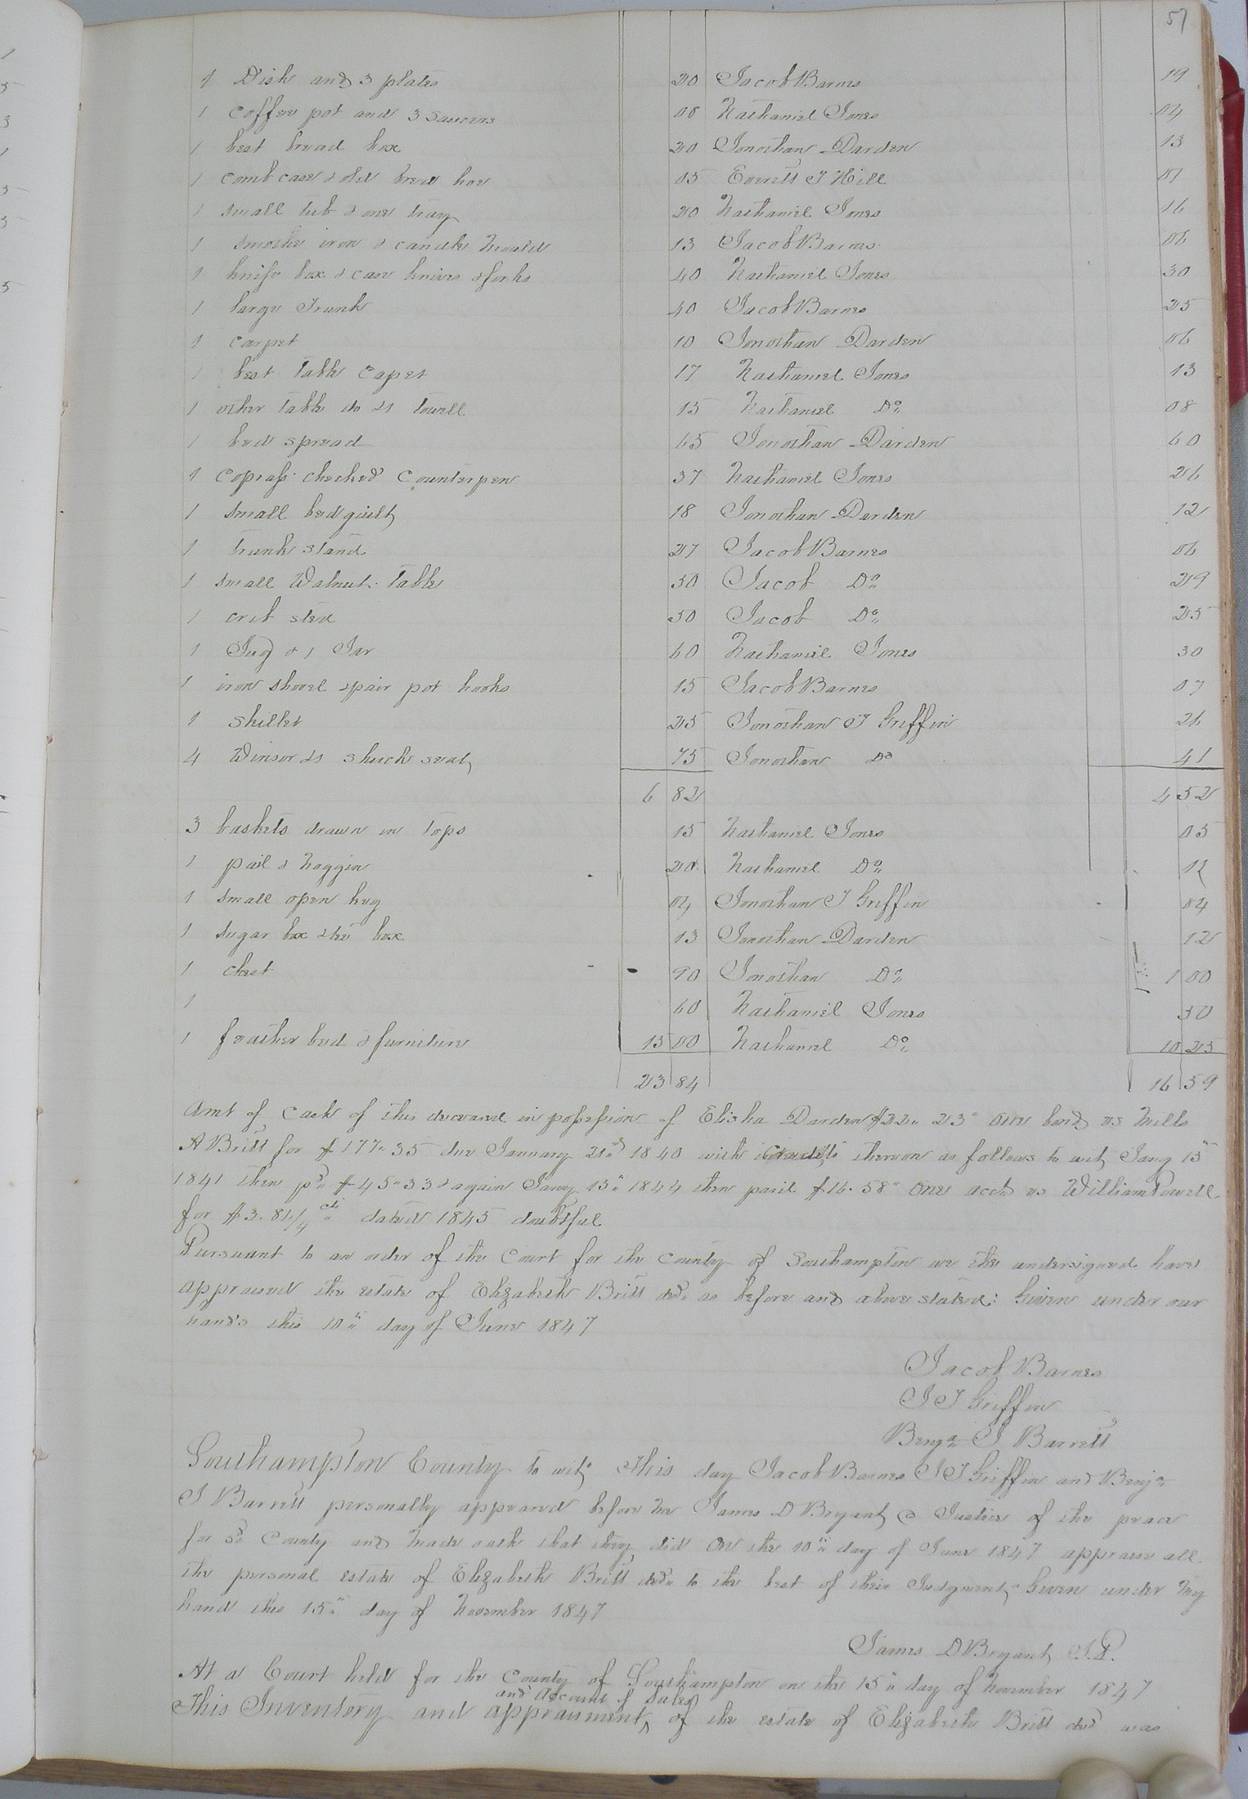 57
1 Dish and 3 plates 20 Jacob Barnes 19
1 Coffee pot and 3 saucers 08 Nathaniel Jones 04
1 best bread box 20 Jonothan Darden 13
1 comb case & old bread hoe 05 Everitt J Hill 01
1 small tub & one tray 20 Nathaniel Jones 16
1 smooth iron & candle mould 13 Jacob Barnes 06
1 knife box & case knives & forks 40 Nathaniel Jones 30
1 large Trunk 40 Jacob Barnes 25
1 carpet 10 Jonothan Darden 06
1 best Table Capet 17 Nathaniel Jones 13
1 other Table do & 1 towell 15 Nathaniel Do 08
1 bed spread 65 Jonothan Darden 60
1 Coprass checked Counterpen 37 Nathaniel Jones 26
1 small bed quilt 18 Jonothan Darden 12
1 trunk stand 27 Jacob Barnes 06
1 small Walnut Table 30 Jacob Do 29
1 crib sted 50 Jacob Do 25
1 Jug & 1 Jar 60 Nathaniel Jones 30
1 iron shovel & pair pot hooks 15 Jacob Barnes 07
1 Skillet 25 Jonothan T Griffin 26
4 Winsor & 1 shuck seat 75 Jonothan Do 41
6 82 4 52
3 baskets drawn in Tops 15 Nathaniel Jones 05
1 pail & noggin 20 Nathaniel Do 12
1 small open keg 04 Jonothan T Griffin 04
1 sugar box & tea box 13 Jonothan Darden 12
1 chest 90 Jonothan Do 1 00
1 60 Nathaniel Jones 50
1 feather bed & furniture 15 00 Nathaniel Do 10 25
23 84 16 59
Amt of Cash of this deceased in possession of Elisha Darden $22. 23 One bond vs Mills
A Britt for $177.35 due January 21st 1840 with credits thereon as follows to wit, Jany 15th
1841 then pd $45.33 & again Jany 15th 1844 then paid $16.58 One acct vs William Powell
for $3.84 1/4 cts dated 1845 doubtful
Pursuant to an order of the Court for the County of Southampton we the undersigned have
appraised the estate of Elizabeth Britt decd as before and above stated: Given under our
hands this 10th day of June 1847
Jacob Barnes
J T Griffin
Benja J Barrett
Southampton County to wit, This day Jacob Barnes J T Griffin and Benja
J Barrett personally appeared before me James D Bryant a Justice of the peace
for sd County and made oath that they did on the 10th day of June 1847 appraise all
the personal estate of Elizabeth Britt decd to the best of their Judgment. Given under my
hand this 15th day of November 1847
James D Bryant J.P.
At a Court held for the County of Southampton on the 15th day of November 1847
and Account of Sales
This Inventory and appraisment, of the estate of Elizabeth Britt decd was